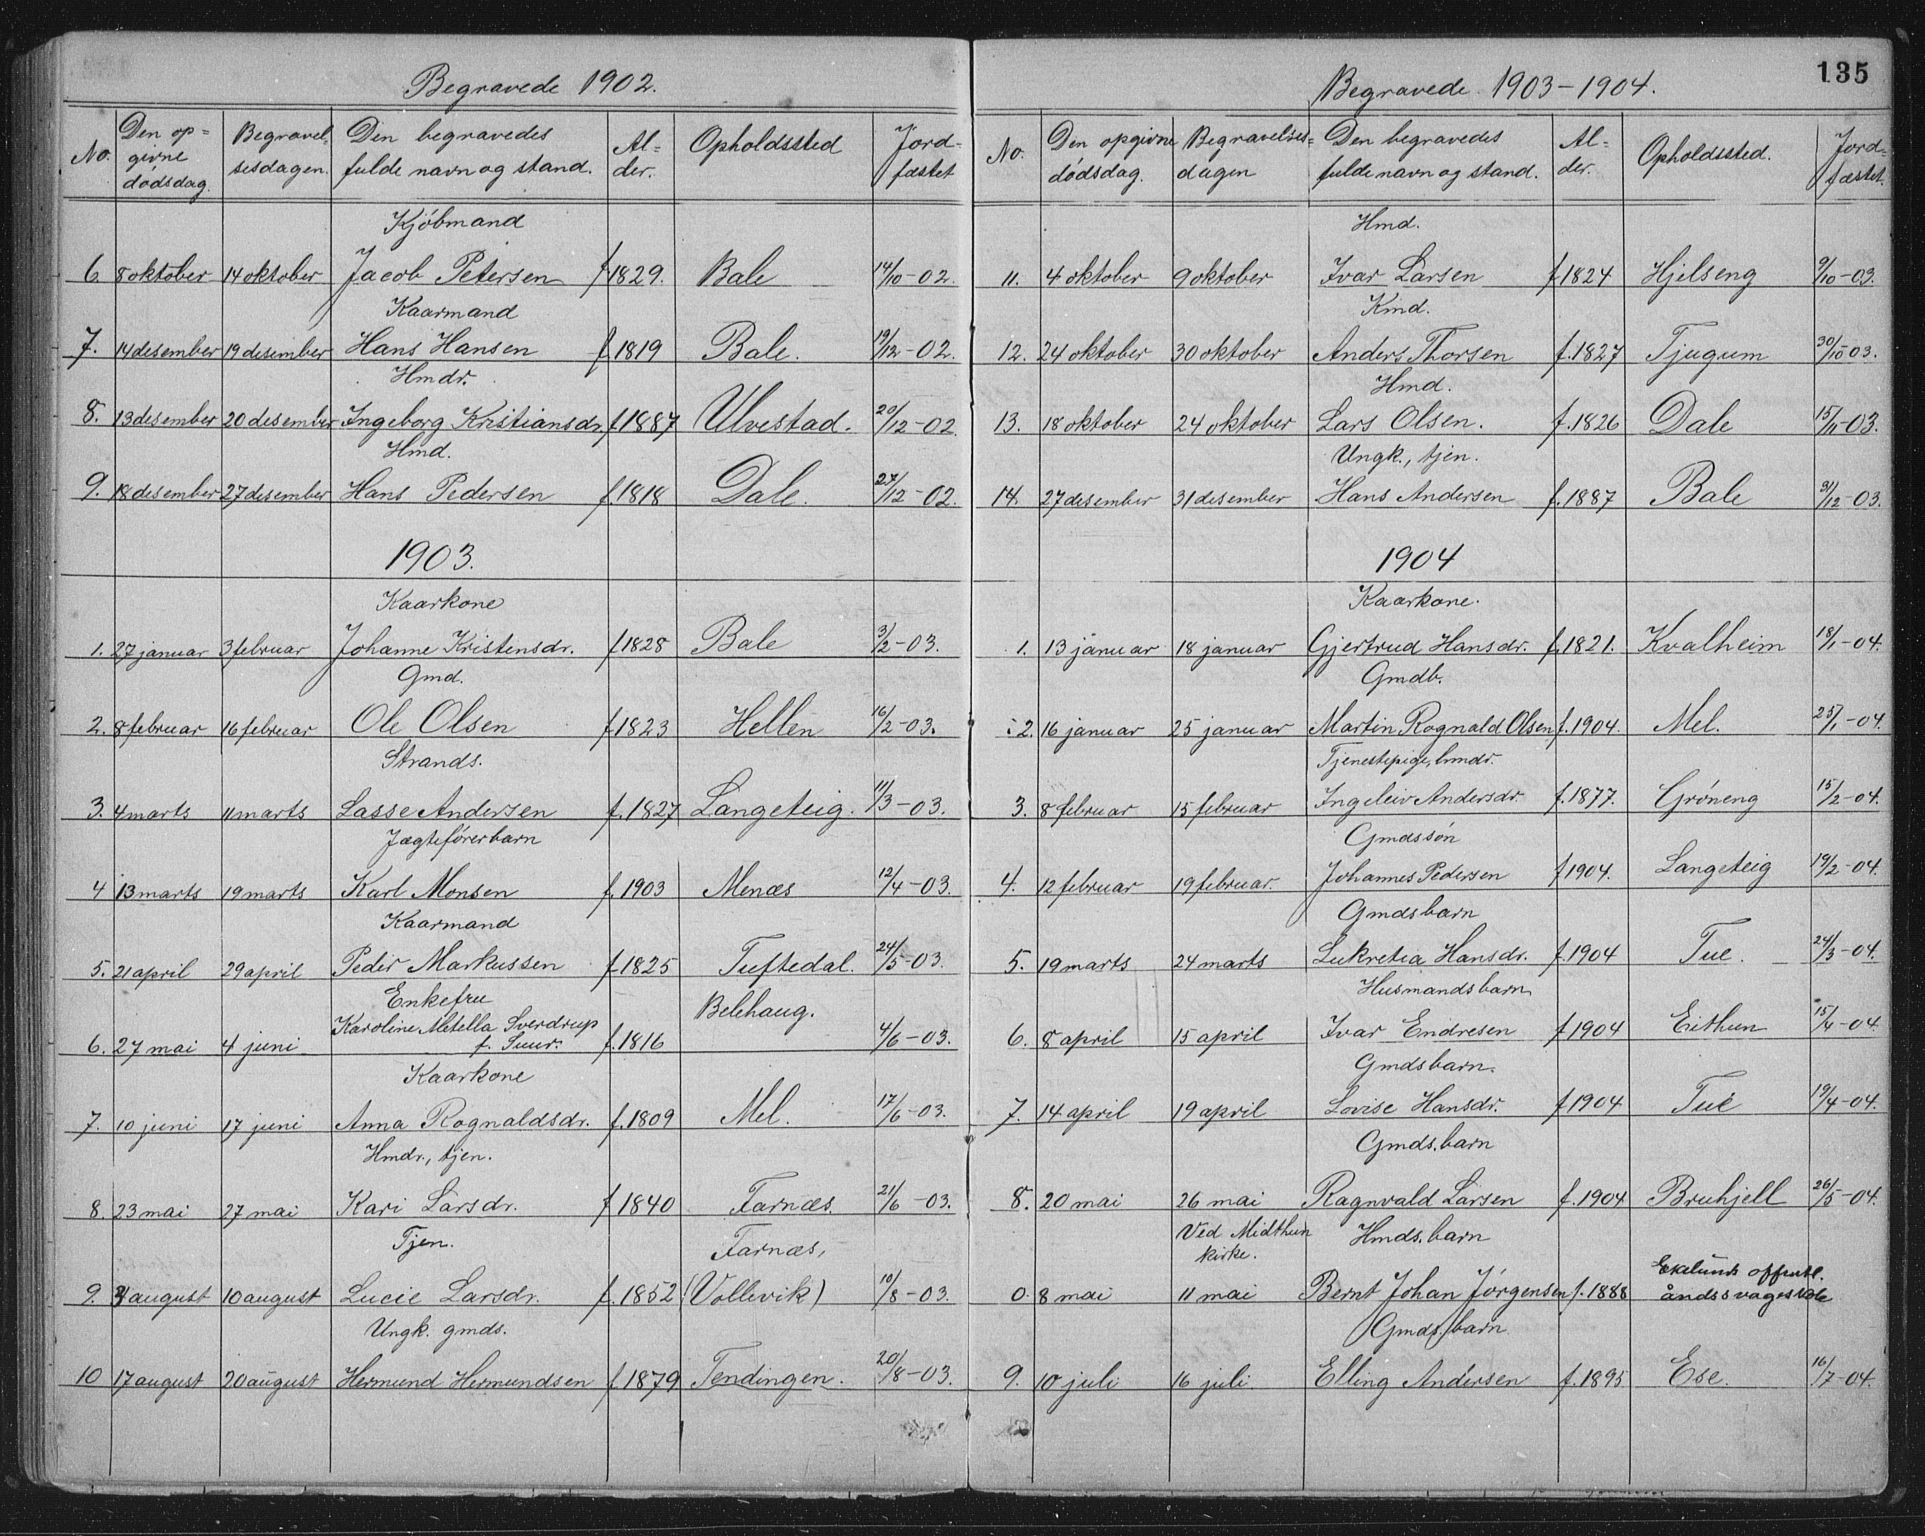 Begravede 1902.
No. Den opgivne dödsdag. Begravelsesdagen. Den begravedes fulde navn og stand. Alder. Opholdssted Jordfæstet
Kjöbmand
6. 8 oktober 14 oktober Jacob Petersen f 1829. Bale 14/10-02.
Kaarmand
7. 14 desember 19 desember Hans Hansen f 1819 Bale. 19/12-02.
Hmdr.
8. 13 desember 20 desember Ingeborg Kristiansdr. f 1887 Ulvestad. 20/12-02.
Hmd.
9. 18 desember 27 desember Hans Pedersen f 1818 Dale. 27/12-02.
1903.
Kaarkone
1. 27 januar 3 februar Johanne Kristensdr. f 1828 Bale 3/2-03.
Gmd.
2. 8 februar 16 februar Ole Olsen f 1823 Hellen 16/2-03.
Strands.
3. 4 marts 11 marts Lasse Andersen f. 1827 Langeteig. 11/3-03.
Jægteförerbarn
4 13 marts 19 marts Karl Monsen f. 1903 Menæs 12/4-03.
Kaarmand
5. 21 april 29 april Peder Markussen f 1825 Tuftedal. 24/5-03
Enkefru Belehaug.
Karoline Metella Sverdrup
6. 27 mai 4 juni f. Suur. f. 1816 4/6-03.
Kaarkone
7. 10 juni 17 juni Anna Rognaldsdr. f. 1809 Mel. 17/6-03.
Hmdr., tjen.
8. 23 mai 27 mai Kari Larsdr. f 1840 Farnæs. 21/6-03.
Tjen. Farnæs,
9. 3 august 10 august Lucie Larsdr. f. 1852 (Vollevik) 10/8-03.
Ungk. gmds.
10 17 august 20 august Hermund Hermundsen f. 1879 Tendingen. 20/8-03.
135
Begravede 1903-1904.
No. Den opgivne dödsdag. Begravelsesdagen Den begravedes fulde navn og stand. Alder. Opholdssted. Jordfæstet.
Hmd.
11. 4 oktober 9 oktober Ivar Larsen f 1824 Hjelseng 9/10-03.
Kmd.
12. 24 oktober 30 oktober Anders Thorsen f. 1827 Tjugum 30/10-03.
Hmd.
13. 18 oktober 24 oktober Lars Olsen. f. 1826 Dale 15/11-03.
Ungk., tjen.
14. 27 desember 31 desember Hans Andersen f. 1887 Bale 31/12-03.
1904
Kaarkone.
1. 13 januar 18 januar Gjertrud Hansdr. f. 1821. Kvalheim 18/1-04.
Gmdb.
2. 16 januar 25 januar Martin Rognald Olsen f. 1904. Mel. 25/1-04.
Tjenestepige, hmdr.
3. 8 februar 15 februar Ingeleiv Andersdr. f. 1877. Gröneng 15/2-04.
Gmdssön
4. 12 februar 19 februar. Johannes Pedersen f 1904. Langeteig 19/2-04.
Gmdsbarn
5. 19 marts 24 marts Lukretia Hansdr. f. 1904 Tue. 24/3-04.
Husmandsbarn
6. 8 april 15 april Ivar Endresen f 1904 Eithun 15/4-04.
Gmdsbarn.
7. 14 april 19 april Lovise Hansdr. f 1904 Tue 19/4-04.
Gmds. barn
8. 20 mai 26 mai Ragnvald Larsen f. 1904 Bruhjell 26/5-04.
Ved Midthun kirke. Hmds. barn
0. 8 mai 11 mai Bernt Johan Jörgensen f. 1888 Eklunds offentl. åndssvageskole
Gmds. barn
9. 10 juli 16 juli Elling Andersen f. 1895 Ese. 16/7-04.